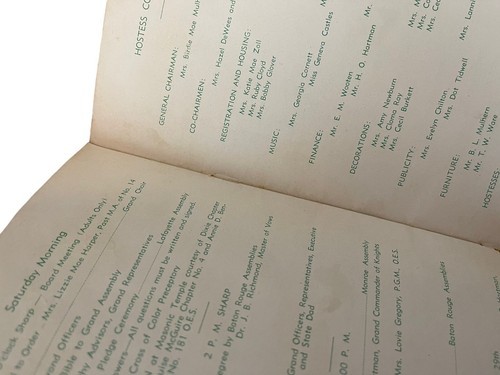 HOSTESS CO
GENERAL CHAIRMAN:
Mrs. Birdie Mae Mulh
CO-CHAIRMEN:
Mrs. Hazel DeWees and
REGISTRATION AND HOUSING:
Mrs. Katie Mae Zoll
Mrs. Ruby Cloyd
Mrs. Bobby Glover
MUSIC:
Mrs. Georgia Cornett
Miss Geneva Castles
FINANCE:
Mr. E. M. Wooten
Mr. H. O. Hartman
DECORATIONS:
Mrs. Amy Newburn
Mrs. Cloma Ray
Mrs. Cecil Burkett
PUBLICITY:
Mrs. Evelyn Chilton
Mrs. Dot Tidwell
Mrs. Lanni
FURNITURE:
Mr. B. L. Mulhern
Mr. T. W. Ware
HOSTESSES
Saturday Morning
o'clock Sharp — Board Meeting (Adults Only)
to Order - Mrs. Lizzie Mae Harper, Past M.A. of No. 14
Grand Choir
and Officers
ible to Grand Assembly
ry Advisors, Grand Representatives
pledge Ceremony Lafayette Assembly
wers—All questions must be written and signed.
Cross of Color Preceptory
at Masonic Temple courtesy of Dixie Chapter
uise McGuire Chapter No. 4 and Annie D. Ben-
No. 181 O.E.S.
2 P. M. SHARP
egree by Baton Rouge Assemblies
Dr. J. B. Richmond, Master of Vows
Grand Officers, Representatives, Executive
and State Dad
00 P. M.
Monroe Assembly
tman, Grand Commander of Knights
Mrs. Lovie Gregory, P.G.M., O.E.S.
Baton Rouge Assemblies